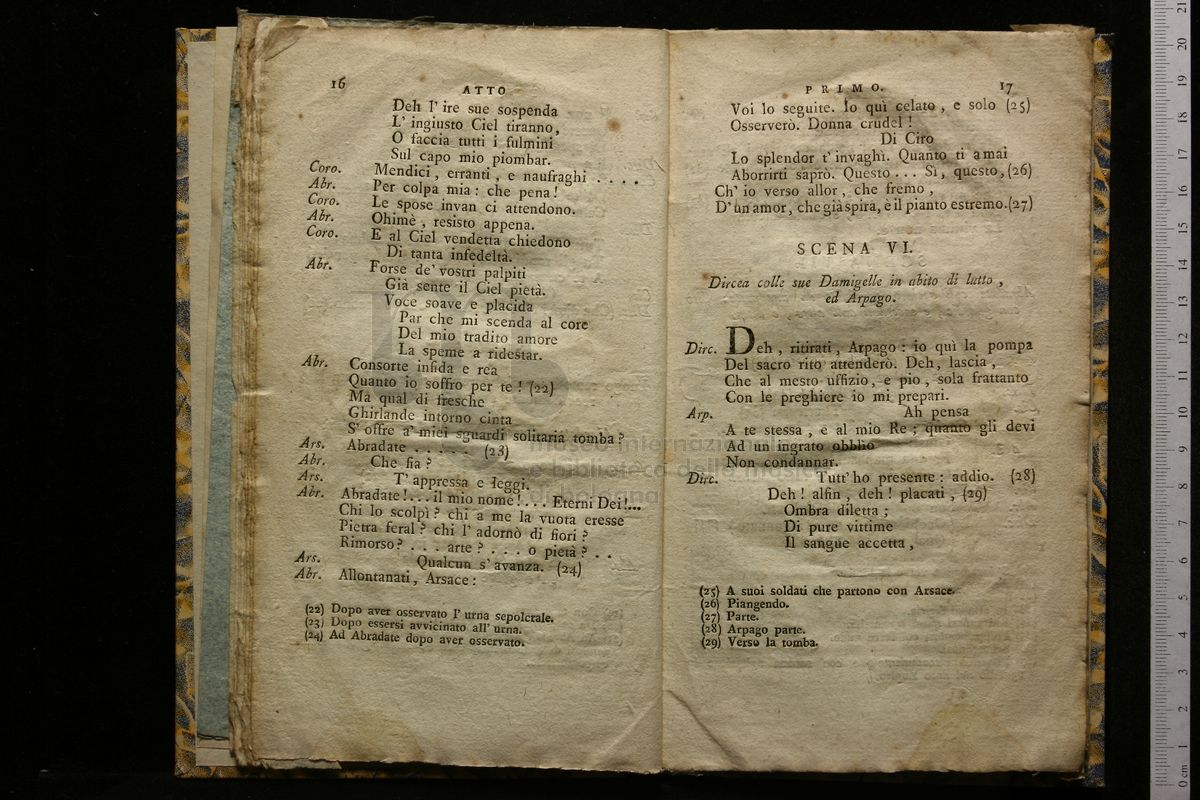 16
ATTO
Deh l' ire sue sospenda
L' ingiusto Ciel tiranno,
O faccia tutti i fulmini
Sul capo mio piombar.
Coro. Mendici, erranti, e naufraghi . . . .
Abr. Per colpa mia: che pena!
Coro. Le spose invan ci attendono.
Abr. Ohimè, resisto appena.
Coro. E al Ciel vendetta chiedono
Di tanta infedeltà.
Abr. Forse de' vostri palpiti
Già sente il Ciel pietà.
Voce soave e placida
Par che mi scenda al core
Del mio tradito amore
La speme a ridestar.
Abr. Consorte infida e rea
Quanto io soffro per te! (22)
Ma qual di fresche
Ghirlande intorno cinta
S' offre a' miei sguardi solitaria tomba?
Ars. Abradate . . . . . (23)
Abr. Che fia?
Ars. T' appressa e leggi.
Abr. Abradate!... il mio nome!... Eterni Dei!...
Chi lo scolpì? chi a me la vuota eresse
Pietra feral? chi l' adornò di fiori?
Rimorso? . . . arte? . . . o pietà? . .
Ars. Qualcun s' avanza. (24)
Abr. Allontanati, Arsace:
(22) Dopo aver osservato l' urna sepolcrale.
(23) Dopo essersi avvicinato all' urna.
(24) Ad Abradate dopo aver osservato.
PRIMO.
17
Voi lo seguite. Io quì celato, e solo (25)
Osserverò. Donna crudel!
Di Ciro
Lo splendor t' invaghì. Quanto ti amai
Aborrirti saprò. Questo ... Sì, questo, (26)
Ch' io verso allor, che fremo,
D' un amor, che già spira, è il pianto estremo.(27)
SCENA VI.
Dircea colle sue Damigelle in abito di lutto,
ed Arpago.
Dirc. Deh, ritirati, Arpago: io quì la pompa
Del sacro rito attenderò. Deh, lascia,
Che al mesto uffizio, e pio, sola frattanto
Con le preghiere io mi prepari.
Arp. Ah pensa
A te stessa, e al mio Re; quanto gli devi
Ad un ingrato obblio
Non condannar.
Dirc. Tutt' ho presente: addio. (28)
Deh! alfin, deh! placati, (29)
Ombra diletta;
Di pure vittime
Il sangue accetta,
(25) A suoi soldati che partono con Arsace.
(26) Piangendo.
(27) Parte.
(28) Arpago parte.
(29) Verso la tomba.
museo internazionale
e biblioteca della musica
di bologna
0 cm 1 2 3 4 5 6 7 8 9 10 11 12 13 14 15 16 17 18 19 20 21